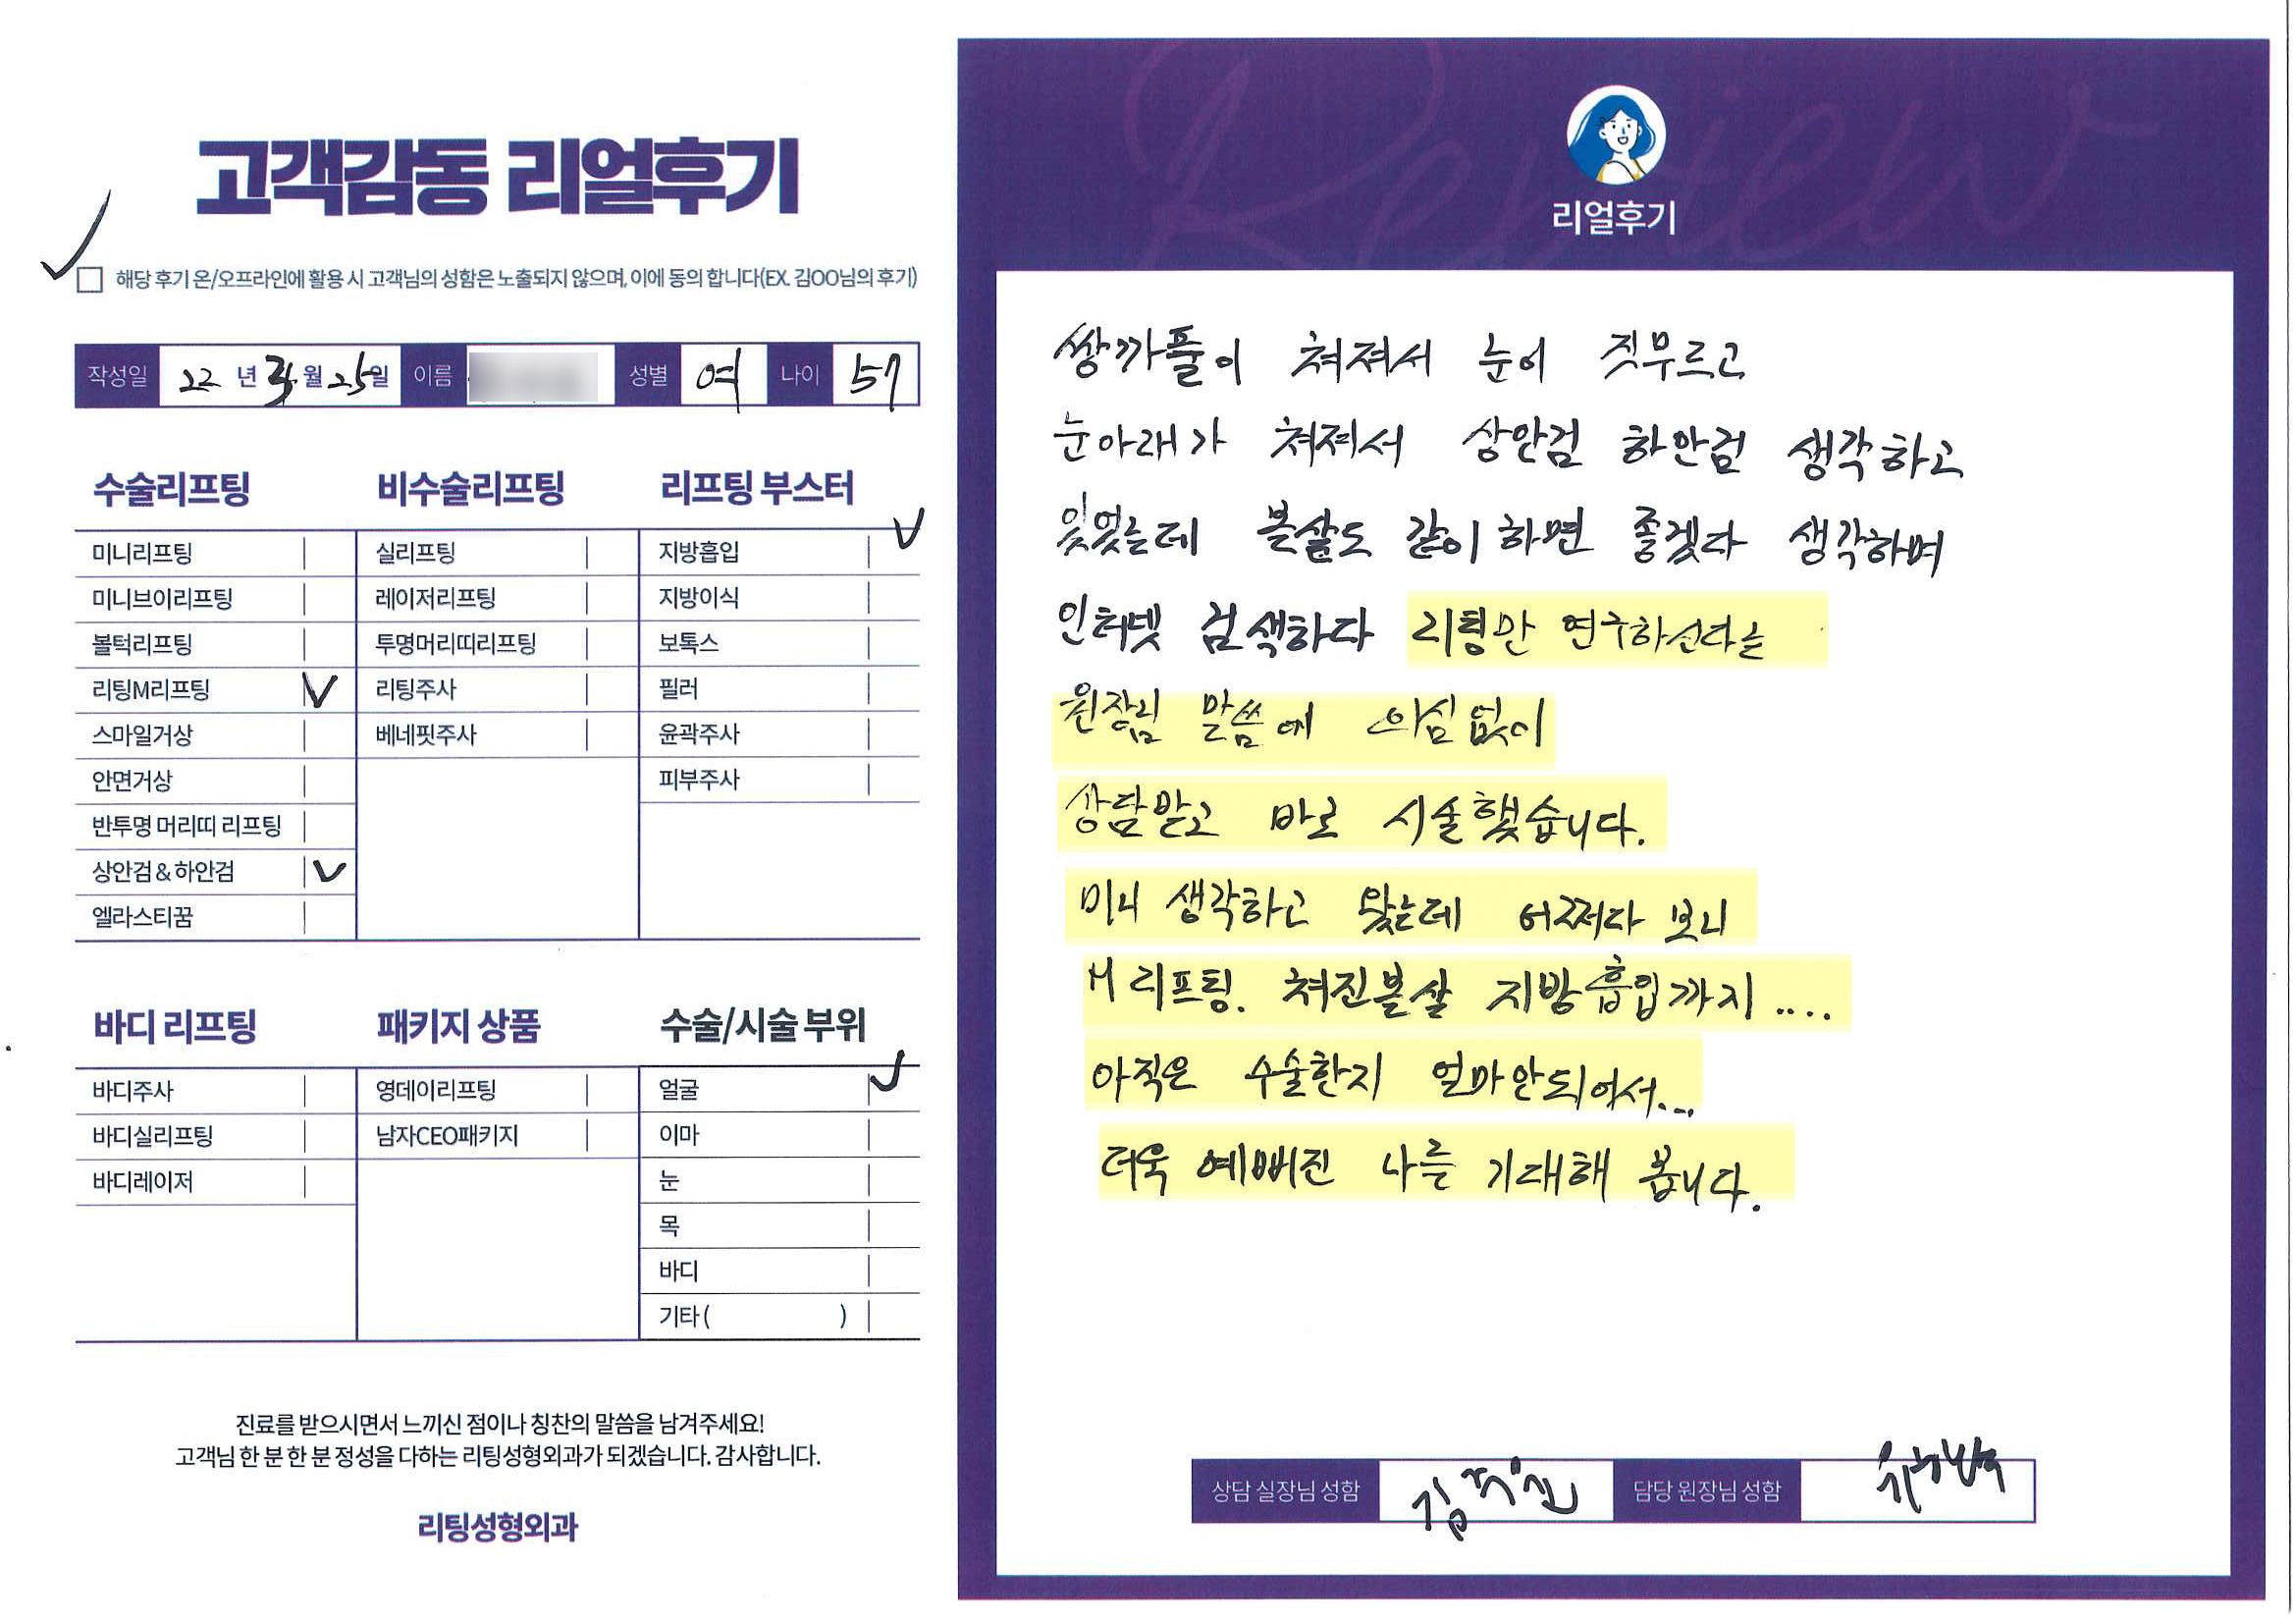 고객감동 리얼후기
해당 후기 온/오프라인에 활용 시 고객님의 성함은 노출되지 않으며, 이에 동의 합니다(EX. 김OO님의 후기)
작성일 22 년 월 25일 이름 성별 여 나이 57
수술리프팅
미니리프팅
미니브이리프팅
볼턱리프팅
리팅M리프팅 V
스마일거상
안면거상
반투명 머리띠 리프팅
상안검 & 하안검 V
엘라스티꿈
비수술리프팅
실리프팅
레이저리프팅
투명머리띠리프팅
리팅주사
베네핏주사
리프팅 부스터
지방흡입 V
지방이식
보톡스
필러
윤곽주사
피부주사
바디 리프팅
바디주사
바디실리프팅
바디레이저
패키지 상품
영데이리프팅
남자CEO패키지
수술/시술 부위
얼굴 V
이마
눈
목
바디
기타 ( )
진료를 받으시면서 느끼신 점이나 칭찬의 말씀을 남겨주세요!
고객님 한 분 한 분 정성을 다하는 리팅성형외과가 되겠습니다. 감사합니다.
리팅성형외과
Review
리얼후기
쌍까풀이 쳐져서 눈이 짓무르고
눈아래가 쳐져서 상안검 하안검 생각하고
있었는데 볼살도 같이 하면 좋겠다 생각하며
인터넷 검색하다 리팅만 연구하신다는
원장님 말씀에 의심없이
상담받고 바로 시술했습니다.
미니 생각하고 왔는데 어쩌다 보니
M 리프팅. 쳐진볼살 지방흡입까지 ....
아직은 수술한지 얼마안되어서...
더욱 예뻐진 나를 기대해 봅니다.
상담 실장님 성함 담당 원장님 성함